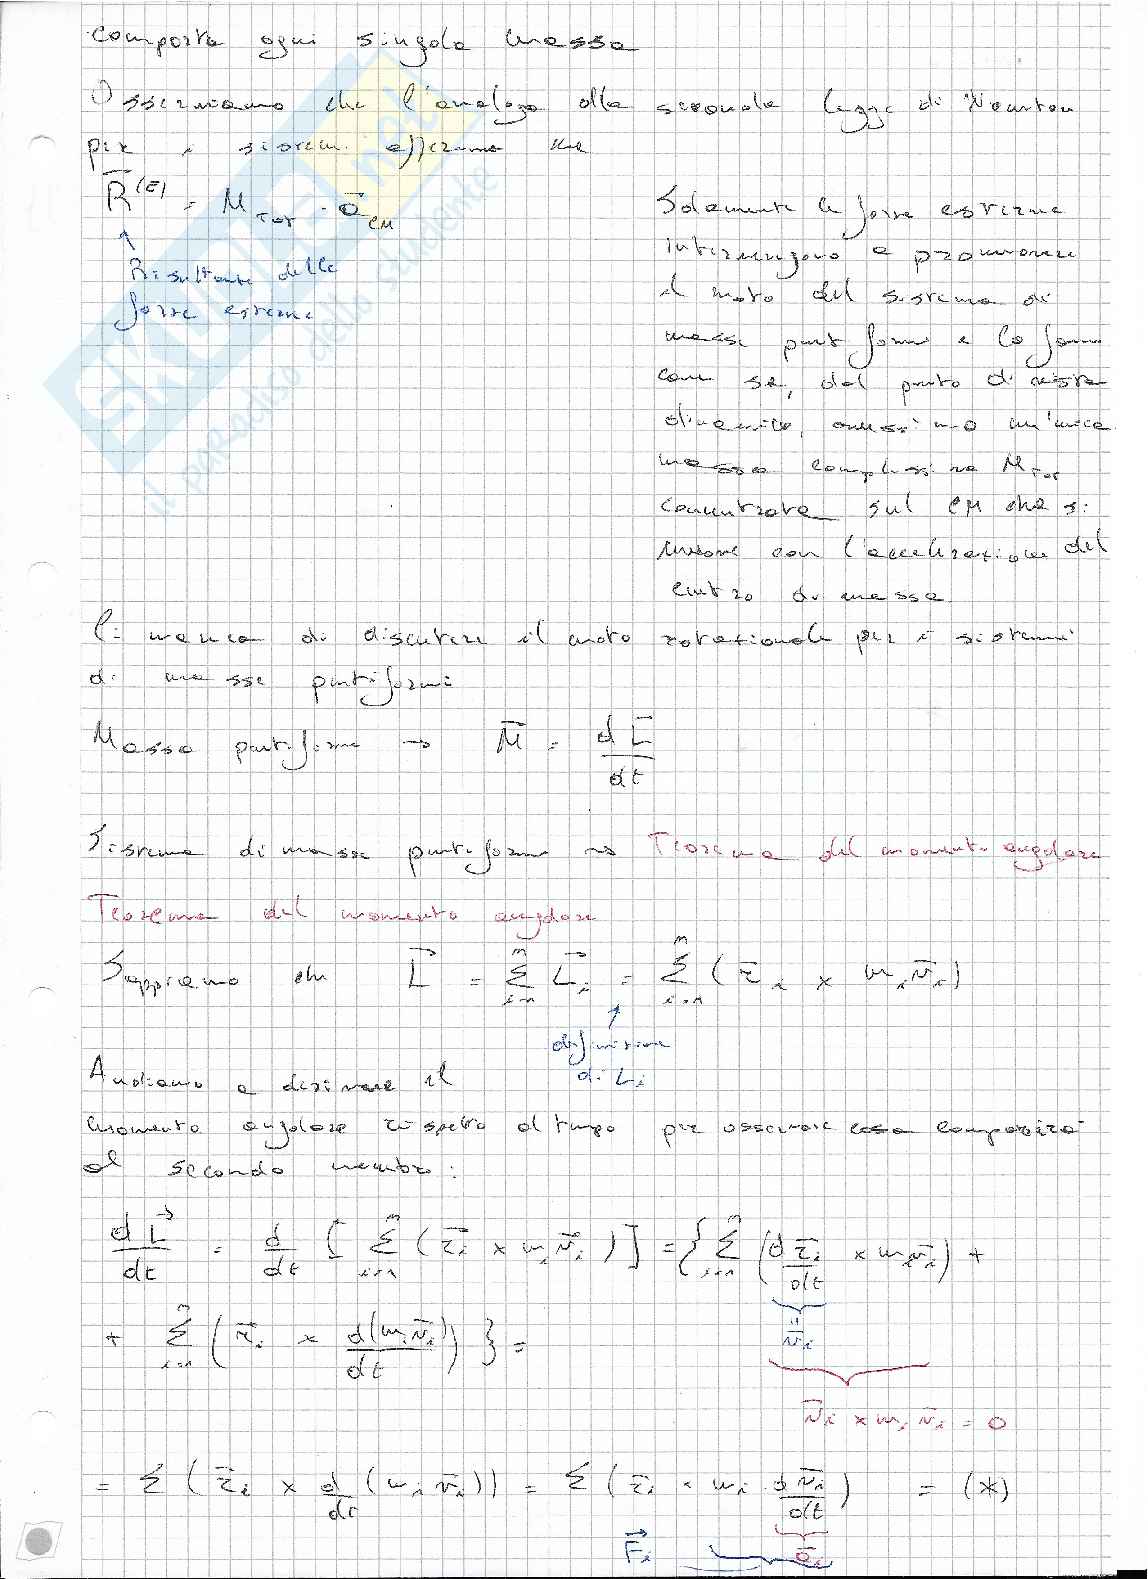 comporta ogni singola massa
Osserviamo che l'analogo alla seconda legge di Newton
per i sistemi afferma che
R̄^(E) = M_TOT · ā_CM
↑
Risultante delle
forze esterne
Solamente le forze esterne
intervengono a promuovere
il moto del sistema di
masse puntiformi e lo fanno
come se, dal punto di vista
dinamico, avessimo un'unica
massa complessiva M_TOT
concentrata sul CM che si
muove con l'accelerazione del
centro di massa
Ci manca di discutere il moto rotazionale per i sistemi
di masse puntiformi
Massa puntiforme → M̄ = dL̄/dt
Sistema di masse puntiformi → Teorema del momento angolare
Teorema del momento angolare
Sappiamo che L⃗ = Σ L⃗_i = Σ (r̄_i × m_i v̄_i)
↑
definizione
di L_i
Andiamo a derivare il
momento angolare rispetto al tempo per osservare cosa comparirà
al secondo membro:
dL⃗/dt = d/dt [Σ (r̄_i × m_i v̄_i)] = {Σ (dr̄_i/dt × m_i v̄_i) +
+ Σ (r̄_i × d(m_i v̄_i)/dt)} =
v̄_i
v̄_i × m_i v̄_i = 0
= Σ (r̄_i × d/dt (m_i v̄_i)) = Σ (r̄_i × m_i · dv̄_i/dt) = (*)
F⃗_i
ā_i
SKUOLA.net
il paradiso dello studente